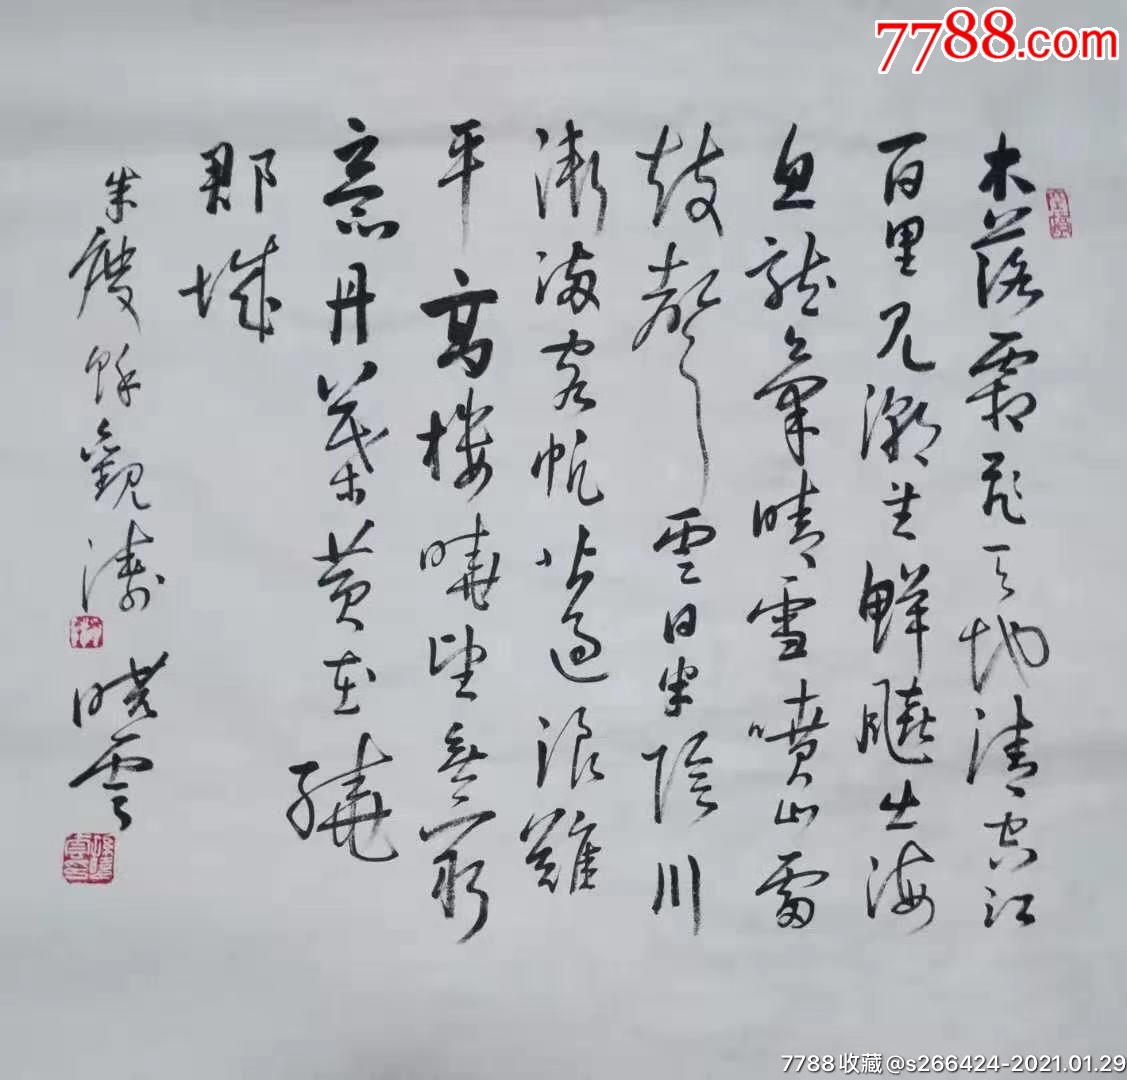 7788.com
木落霜飛天地清空江
百里見潮生鮮飈出海
魚龍氣晴雪噴山雷
鼓聲雲日半陰川
漸滿客帆皆過浪難
平高樓曉望無窮
意丹葉黃花繞
郡城
朱慶餘觀濤 曉雲
7788收藏@s266424-2021.01.29